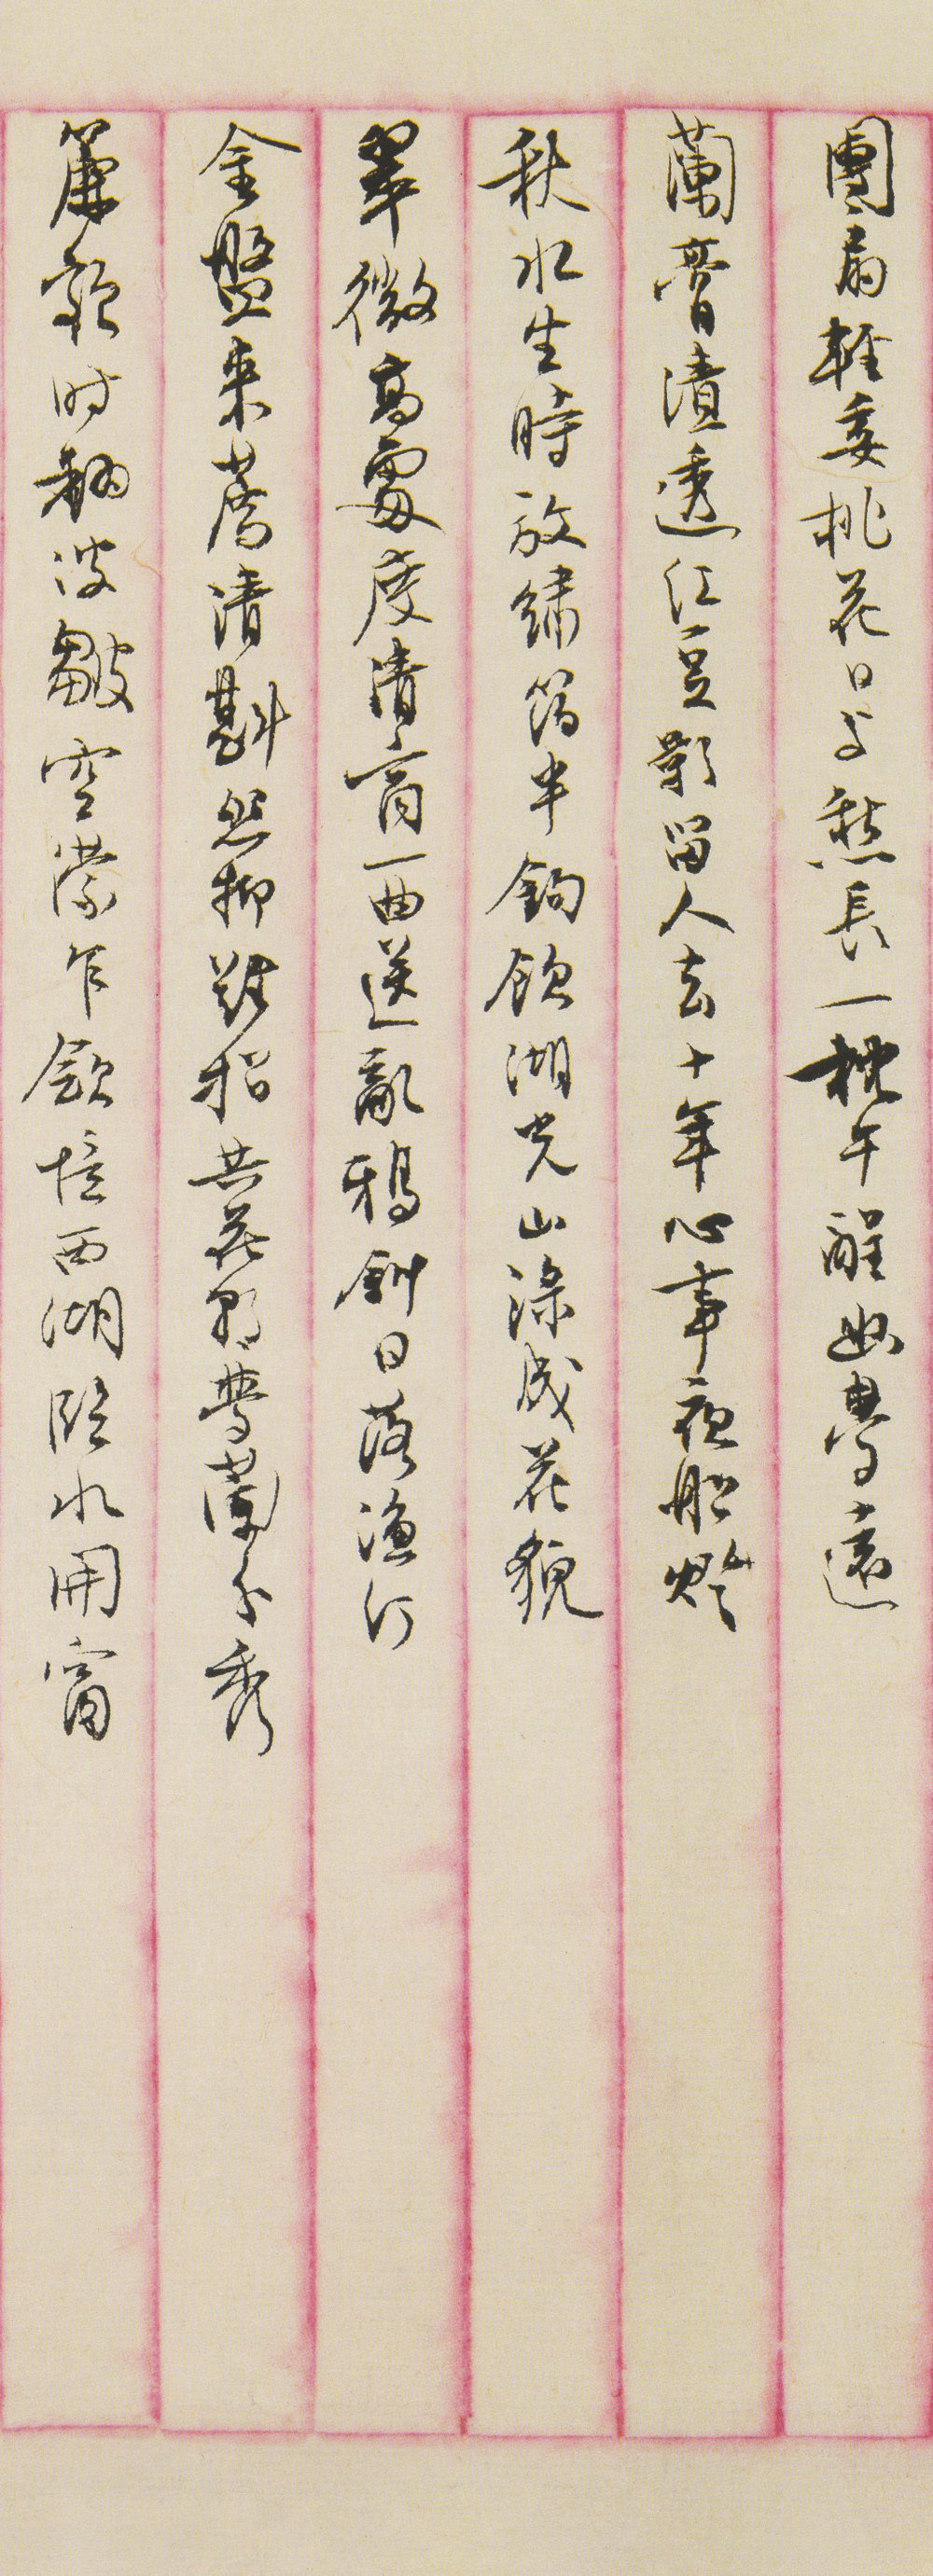 團扇輕委桃花日與愁長一枕午醒幽夢遠
蘭膏漬透紅豆影留人去十年心事夜船燈
秋水生時放繡簡半鉤飲湖光山淥成花貌
翠微高處度清商一曲送亂鴉斜日落漁汀
金盤來薦清斟怨抑難招共花影夢蘭分秀
簾鬆時翻波皺空濛乍斂憶西湖臨水開窗